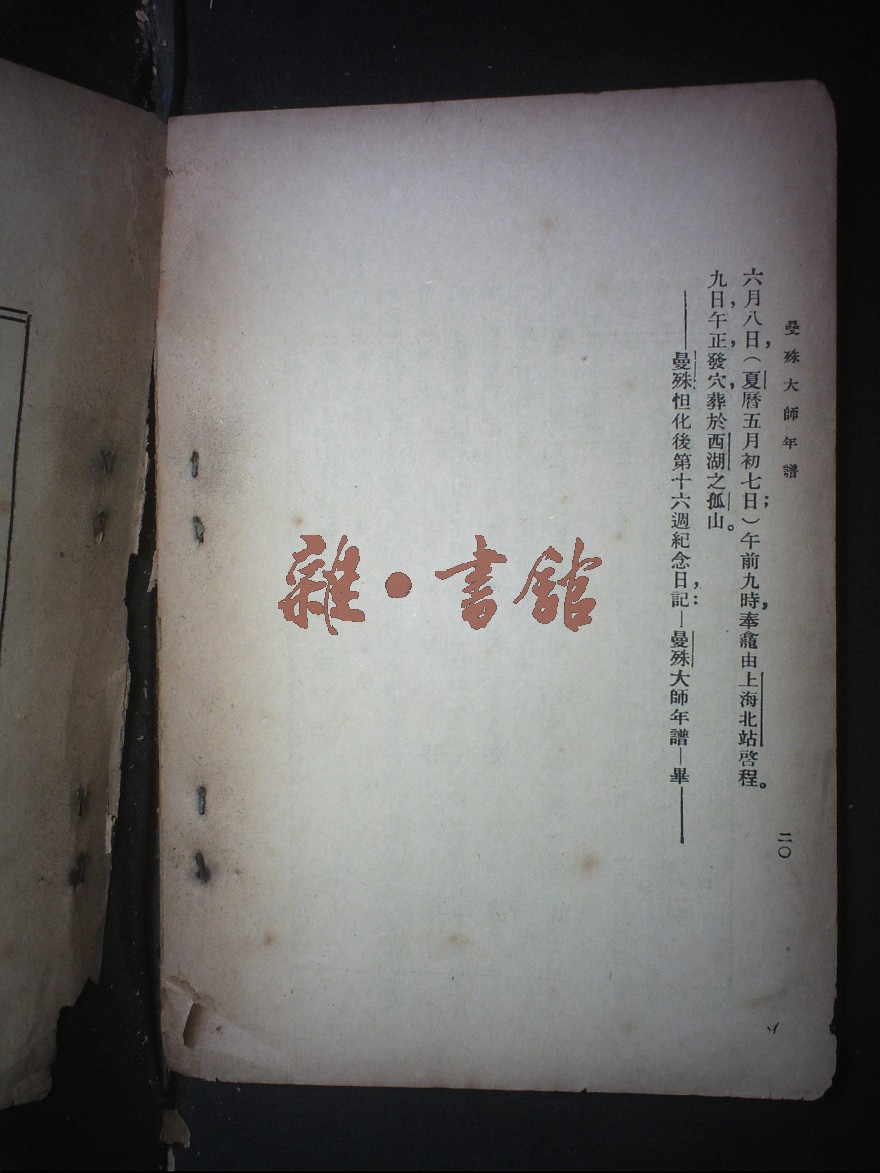 曼殊大師年譜
二〇
六月八日,(夏曆五月初七日;)午前九時,奉龕由上海北站啓程。
九日,午正,發穴,葬於西湖之孤山。
——曼殊怛化後第十六週紀念日,記:—曼殊大師年譜—畢——
雜•書館